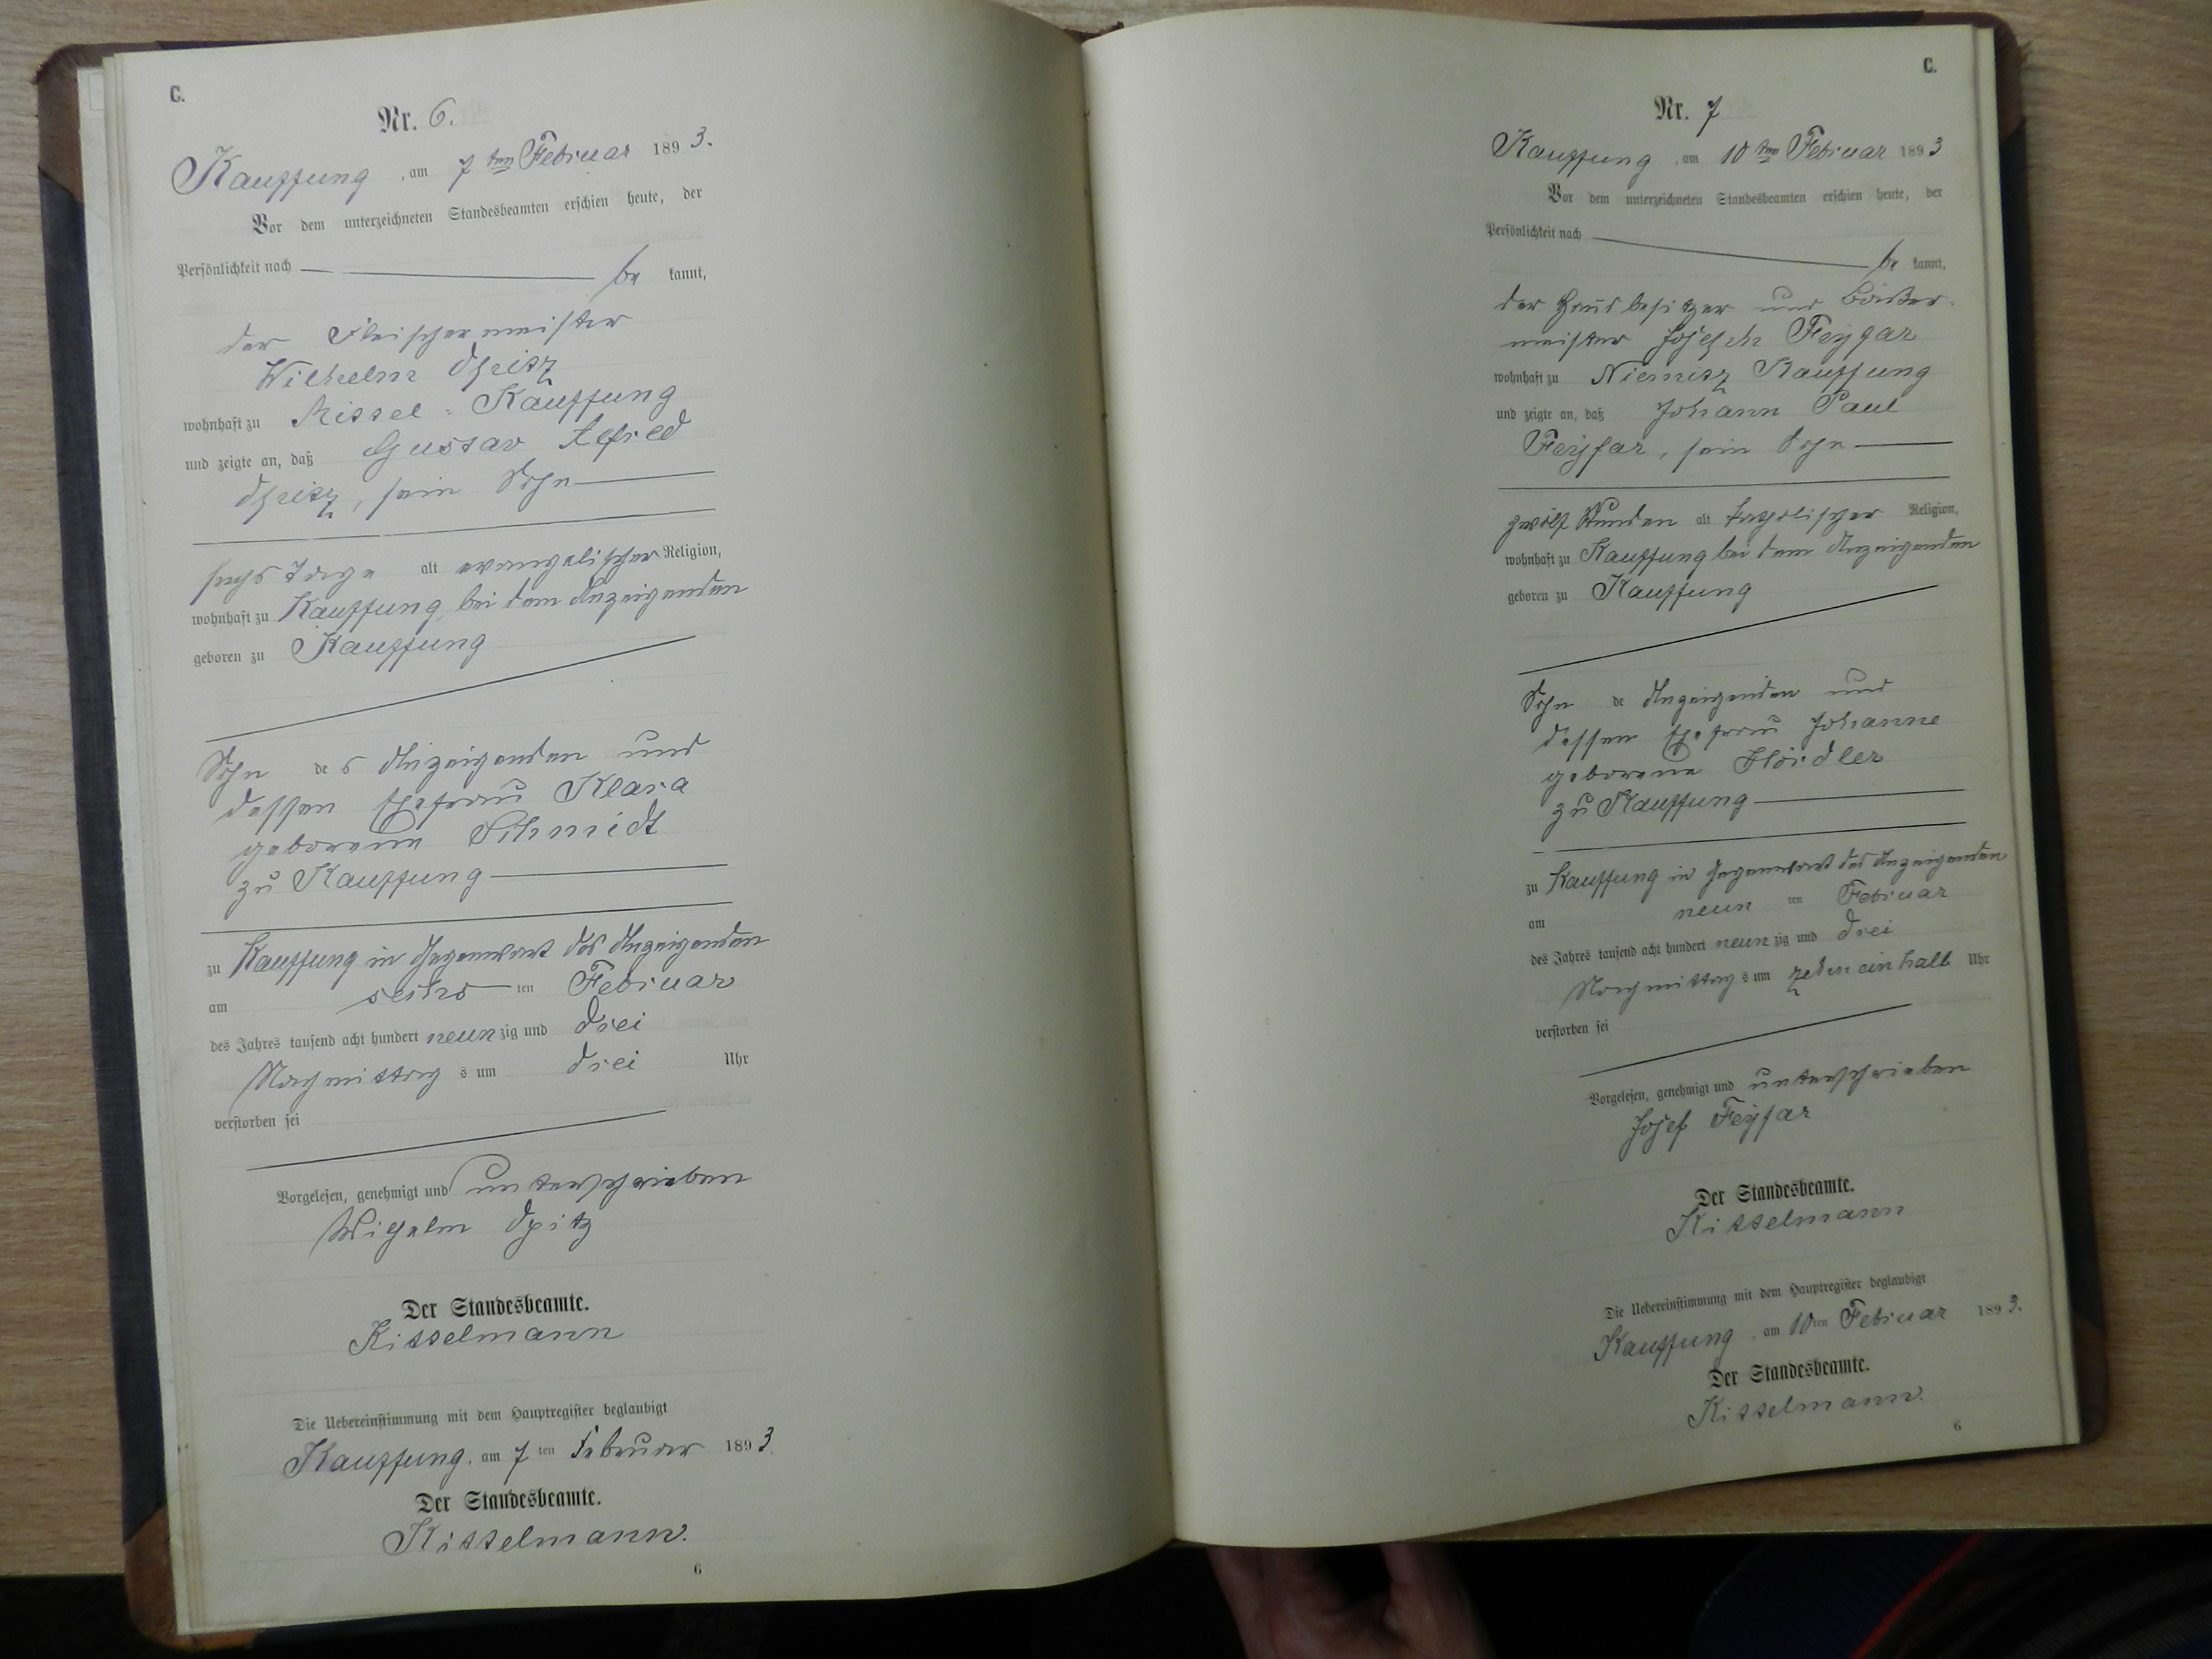 C.
Nr. 6.
Kauffung, am 7ten Februar 1893.
Vor dem unterzeichneten Standesbeamten erschien heute, der
Persönlichkeit nach be kannt,
der Fleischermeister
Wilhelm Spitz
wohnhaft zu Kauffung
und zeigte an, daß Gustav Alfred
Spitz, sein Sohn
sechs Tage alt evangelischer Religion,
wohnhaft zu Kauffung, bei dem Anzeigenden
geboren zu Kauffung
Sohn des Anzeigenden und
dessen Ehefrau Klara
geborene Schmidt
zu Kauffung
zu Kauffung in Gegenwart des Anzeigenden
am sechs ten Februar
des Jahres tausend acht hundert neunzig und drei
Nachmittags um drei Uhr
verstorben sei
Vorgelesen, genehmigt und unterschrieben
Wilhelm Spitz
Der Standesbeamte.
Kisselmann
Die Uebereinstimmung mit dem Hauptregister beglaubigt
Kauffung, am 7ten Februar 1893.
Der Standesbeamte.
Kisselmann.
6
C.
Nr. 7
Kauffung, am 10ten Februar 1893
Vor dem unterzeichneten Standesbeamten erschien heute, der
Persönlichkeit nach be kannt,
der Hausbesitzer und Bäcker-
meister Joseph Feyfar
wohnhaft zu Kauffung
und zeigte an, daß Johann Paul
Feyfar, sein Sohn
zwölf Stunden alt katholischer Religion,
wohnhaft zu Kauffung bei dem Anzeigenden
geboren zu Kauffung
Sohn de Anzeigenden und
dessen Ehefrau Johanne
geborene
zu Kauffung
zu Kauffung in Gegenwart des Anzeigenden
am neun ten Februar
des Jahres tausend acht hundert neunzig und drei
Nachmittags um zehneinhalb Uhr
verstorben sei
Vorgelesen, genehmigt und unterschrieben
Josef Feyfar
Der Standesbeamte.
Kisselmann
Die Uebereinstimmung mit dem Hauptregister beglaubigt
Kauffung, am 10ten Februar 1893.
Der Standesbeamte.
Kisselmann.
6